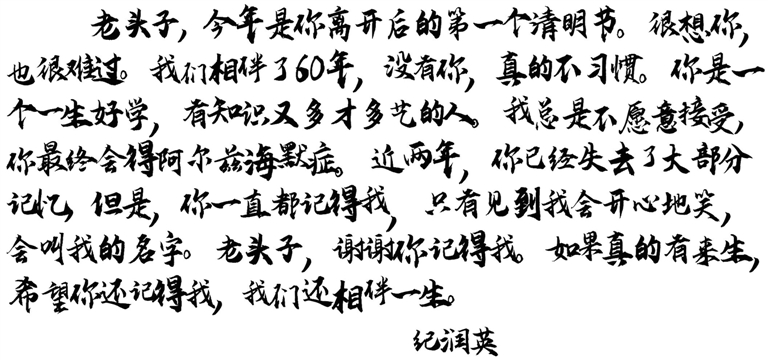 老头子，今年是你离开后的第一个清明节。很想你，
也很难过。我们相伴了60年，没有你，真的不习惯。你是一
个一生好学，有知识又多才多艺的人。我总是不愿意接受，
你最终会得阿尔兹海默症。近两年，你已经失去了大部分
记忆，但是，你一直都记得我，只有见到我会开心地笑，
会叫我的名字。老头子，谢谢你记得我。如果真的有来生，
希望你还记得我，我们还相伴一生。
纪润英